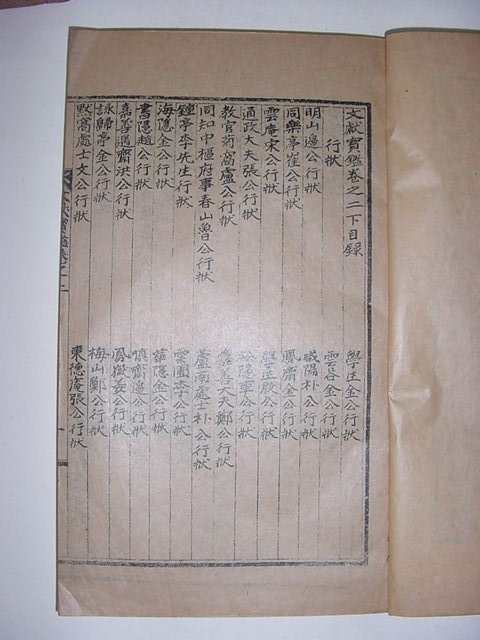 文獻寶鑑卷之二下目錄
行狀
明山邊公行狀
同樂亭崔公行狀
雲庵宋公行狀
通政大夫張公行狀
教官菊窩盧公行狀
同知中樞府事春山魯公行狀
鍾亭李先生行狀
海隱金公行狀
書隱趙公行狀
嘉善遁齋洪公行狀
詠歸亭金公行狀
默窩處士文公行狀
學生金公行狀
雲谷金公行狀
咸陽朴公行狀
鳳齋金公行狀
學生殷公行狀
松隱車公行狀
嘉善大夫鄭公行狀
蘆南處士朴公行狀
雲圃李公行狀
隱金公行狀
慎齋邊公行狀
鳳嶽姜公行狀
梅山鄭公行狀
東德庵張公行狀